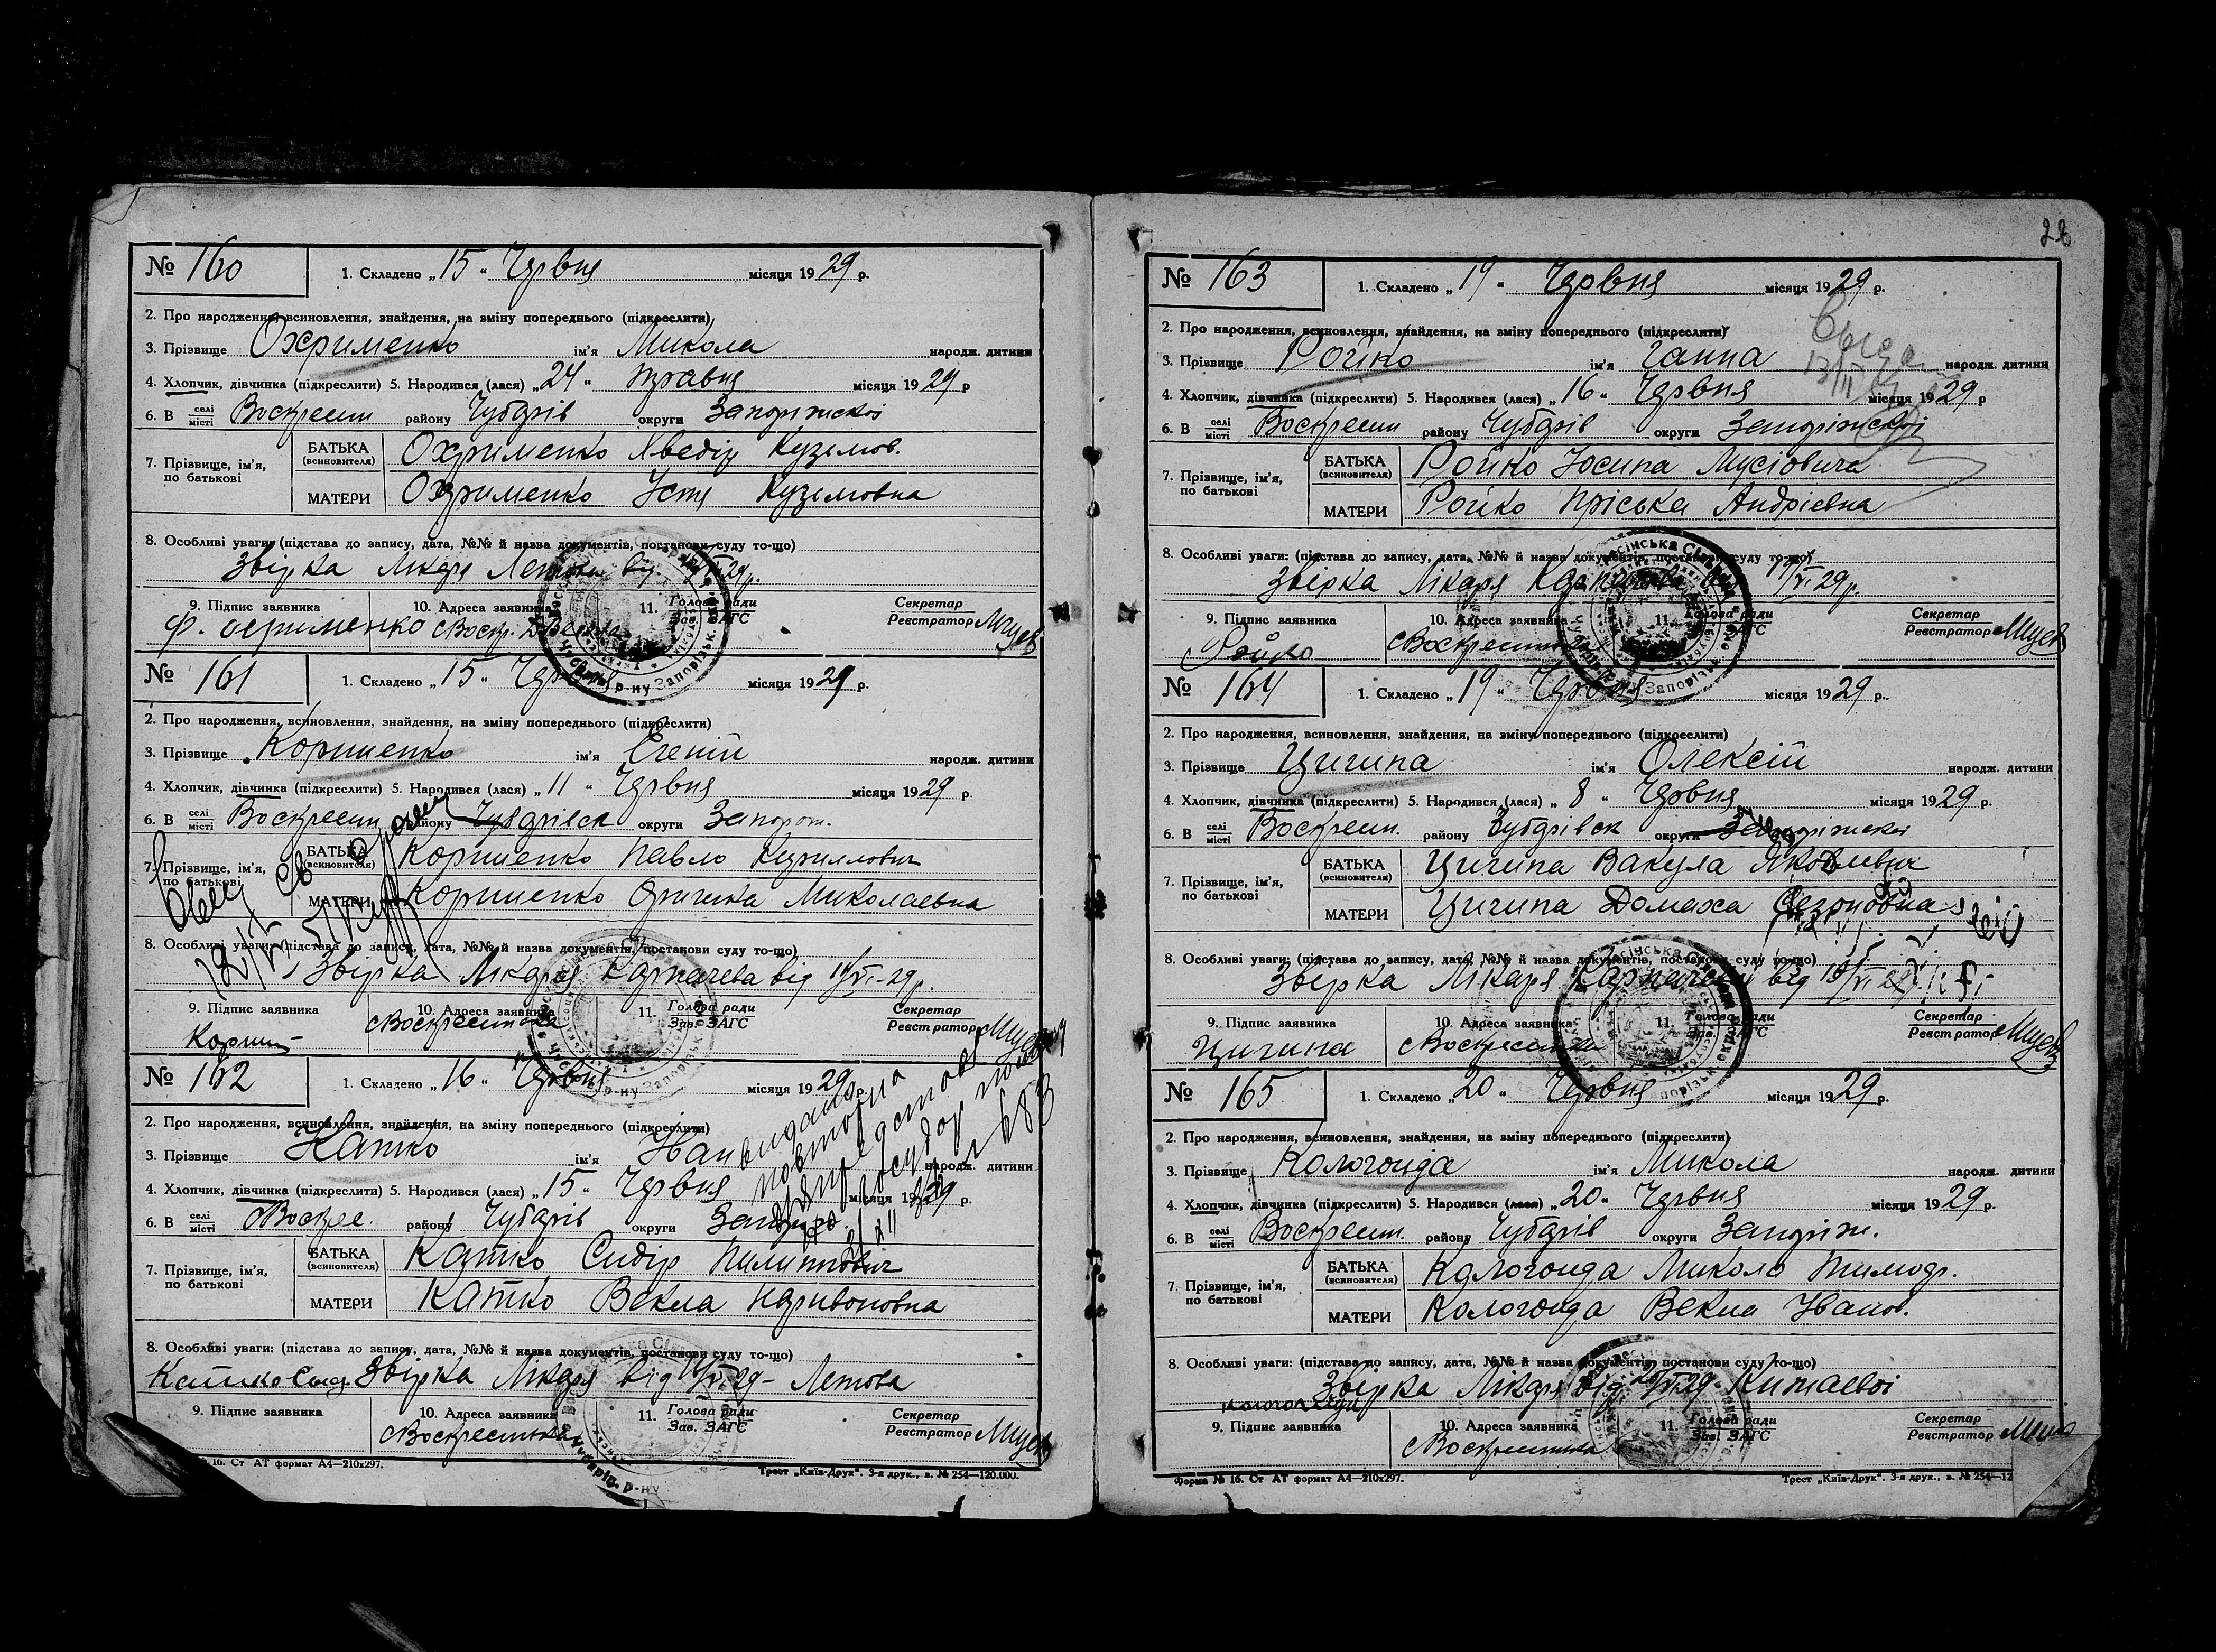 № 160 1. Складено „15" Червня місяця 1929 р.
2. Про народження, всиновлення, знайдення, на зміну попереднього (підкреслити)
3. Прізвище Охрименко ім'я Микола народж. дитини
4. Хлопчик, дівчинка (підкреслити) 5. Народився (лася) „24" травня місяця 1929 р
6. В селі місті Воскресен району Чубарів округи Запоріжської
7. Прізвище, ім'я, по батькові БАТЬКА (всиновителя) Охрименко Хведір Кузьмов.
МАТЕРИ Охрименко Устя Кузьмовна
8. Особливі уваги: (підстава до запису, дата, №№ й назва документів, постанови суду то-що)
Звірка Лікаря від 29р.
9. Підпис заявника 10. Адреса заявника 11. Голова ради Зав. ЗАГС Секретар Реєстратор
Ф. Охрименко с Воскр.
№ 161 1. Складено „15" Червня місяця 1929 р.
2. Про народження, всиновлення, знайдення, на зміну попереднього (підкреслити)
3. Прізвище Коршенко ім'я Євгеній народж. дитини
4. Хлопчик, дівчинка (підкреслити) 5. Народився (лася) „11" Червня місяця 1929 р.
6. В селі місті Воскресен району Чубарівск округи Запорож.
7. Прізвище, ім'я, по батькові БАТЬКА (всиновителя) Коршенко Павло Кирилович
МАТЕРИ Коршенко Оригина Миколаевна
8. Особливі уваги: (підстава до запису, дата, №№ й назва документів, постанови суду то-що)
Звірка Лікаря Карпачева від 11/VI-29р.
9. Підпис заявника 10. Адреса заявника 11. Голова ради Зав. ЗАГС Секретар Реєстратор
Корш с Воскресенка
№ 162 1. Складено „16" Червня місяця 1929 р.
2. Про народження, всиновлення, знайдення, на зміну попереднього (підкреслити)
3. Прізвище Катко ім'я народж. дитини
4. Хлопчик, дівчинка (підкреслити) 5. Народився (лася) „15" Червня місяця 1929 р.
6. В селі місті Воскрес. району Чубарів округи
7. Прізвище, ім'я, по батькові БАТЬКА (всиновителя) Катко Сидір Пилипович
МАТЕРИ Катко Векла Наривоновна
8. Особливі уваги: (підстава до запису, дата, №№ й назва документів, постанови суду то-що)
Катко Сид. Звірка Лікаря від 29- Летова
9. Підпис заявника 10. Адреса заявника 11. Голова ради Зав. ЗАГС Секретар Реєстратор
с Воскресенка
16. Ст АТ формат А4—210х297. Трест „Київ-Друк". 3-я друк., з. № 254—120.000.
№ 163 1. Складено „19" Червня місяця 1929 р.
2. Про народження, всиновлення, знайдення, на зміну попереднього (підкреслити)
3. Прізвище Ройко ім'я Ганна народж. дитини
4. Хлопчик, дівчинка (підкреслити) 5. Народився (лася) „16" Червня місяця 1929 р
6. В селі місті Воскресен району Чубарів округи Запоріжської
7. Прізвище, ім'я, по батькові БАТЬКА (всиновителя) Ройко Йосипа Мусіовича
МАТЕРИ Ройко Пріська Андрієвна
8. Особливі уваги: (підстава до запису, дата, №№ й назва документів, постанови суду то-що)
Звірка Лікаря VI 29р.
9. Підпис заявника 10. Адреса заявника 11. Голова ради Зав. ЗАГС Секретар Реєстратор
Ройко с Воскресенка
№ 164 1. Складено „19" Червня місяця 1929 р.
2. Про народження, всиновлення, знайдення, на зміну попереднього (підкреслити)
3. Прізвище Цигипа ім'я Олексій народж. дитини
4. Хлопчик, дівчинка (підкреслити) 5. Народився (лася) „8" Червня місяця 1929 р.
6. В селі місті Воскресен. району Чубарівск округи Запоріжської
7. Прізвище, ім'я, по батькові БАТЬКА (всиновителя) Цигипа Вакула Яковлевич
МАТЕРИ Цигипа Домаха
8. Особливі уваги: (підстава до запису, дата, №№ й назва документів, постанови суду то-що)
Звірка Лікаря від
9. Підпис заявника 10. Адреса заявника 11. Голова ради Зав. ЗАГС Секретар Реєстратор
Цигипа с Воскресенка
№ 165 1. Складено „20" Червня місяця 1929 р.
2. Про народження, всиновлення, знайдення, на зміну попереднього (підкреслити)
3. Прізвище Кологоида ім'я Микола народж. дитини
4. Хлопчик, дівчинка (підкреслити) 5. Народився (лася) „20" Червня місяця 1929 р.
6. В селі місті Воскресен. району Чубарів округи Запоріж.
7. Прізвище, ім'я, по батькові БАТЬКА (всиновителя) Кологоида Микола Тимоф.
МАТЕРИ Кологоида Векла Іванов.
8. Особливі уваги: (підстава до запису, дата, №№ й назва документів, постанови суду то-що)
Звірка Лікаря від 29 Китаєвої
9. Підпис заявника 10. Адреса заявника 11. Голова ради Зав. ЗАГС Секретар Реєстратор
с Воскресенка
Форма № 16. Ст АТ формат А4—210х297. Трест „Київ-Друк". 3-я друк., з. № 254—12